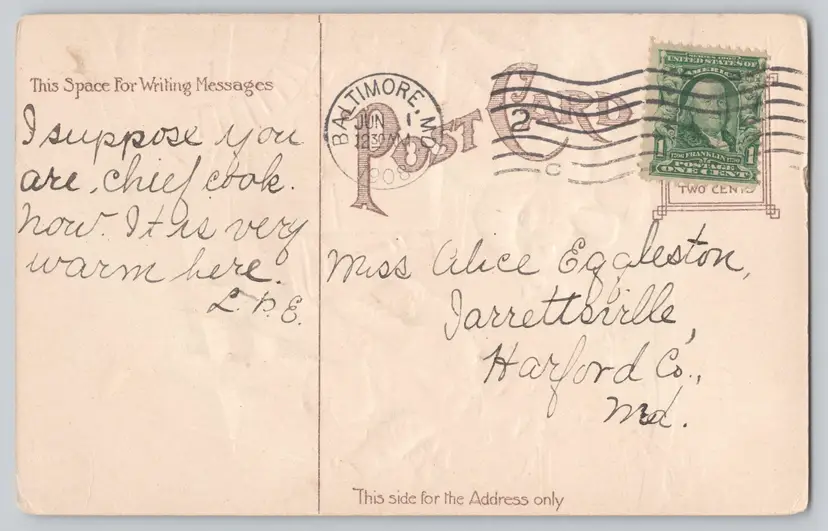 This Space For Writing Messages
I suppose you
are, chief cook.
now. It is very
warm here.
L. P. E.
POST CARD
BALTIMORE, MD.
JUN 1
12 30 AM
1908
2
C
SERIES 1902
UNITED STATES OF
AMERICA
1 FRANKLIN 1
POSTAGE
ONE CENT
TWO CENTS
Miss Alice Eggleston,
Jarrettsville,
Harford Co.,
Md.
This side for the Address only